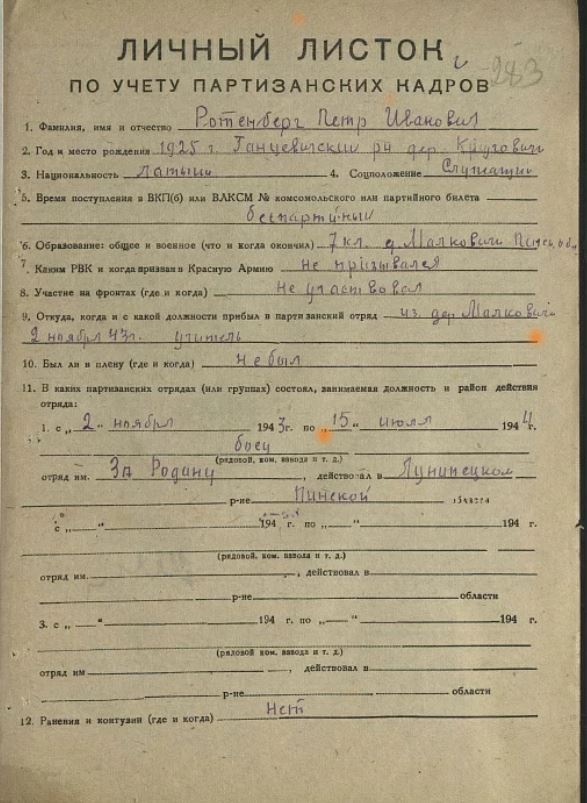 ЛИЧНЫЙ ЛИСТОК
283
ПО УЧЕТУ ПАРТИЗАНСКИХ КАДРОВ
1. Фамилия, имя и отчество Ротенберг Петр Иванович
2. Год и место рождения 1925 г. Ганцевичский рн дер. Круговичи
3. Национальность латыш 4. Соцположение Служащий
5. Время поступления в ВКП(б) или ВЛКСМ № комсомольского или партийного билета
беспартийный
6. Образование: общее и военное (что и когда окончил) 7 кл. д. Малковичи
7. Каким РВК и когда призван в Красную Армию не призывался
8. Участие на фронтах (где и когда) не участвовал
9. Откуда, когда и с какой должности прибыл в партизанский отряд из дер. Малковичи
2 ноября 43 г. учитель
10. Был ли в плену (где и когда) не был
11. В каких партизанских отрядах (или группах) состоял, занимаемая должность и район действия
отряда:
1. с „2“ ноября 1943 г. по „15“ июля 1944 г.
боец
(рядовой, ком. взвода и т. д.)
отряд им. За Родину, действовал в Лунинецком
р-не Пинской области
с „ “ 194 г. по „ “ 194 г.
(рядовой, ком. взвода и т. д.)
отряд им. , действовал в
р-не области
3. с „ “ 194 г. по „ “ 194 г.
(рядовой, ком. взвода и т. д.)
отряд им , действовал в
р-не области
12. Ранения и контузии (где и когда) Нет